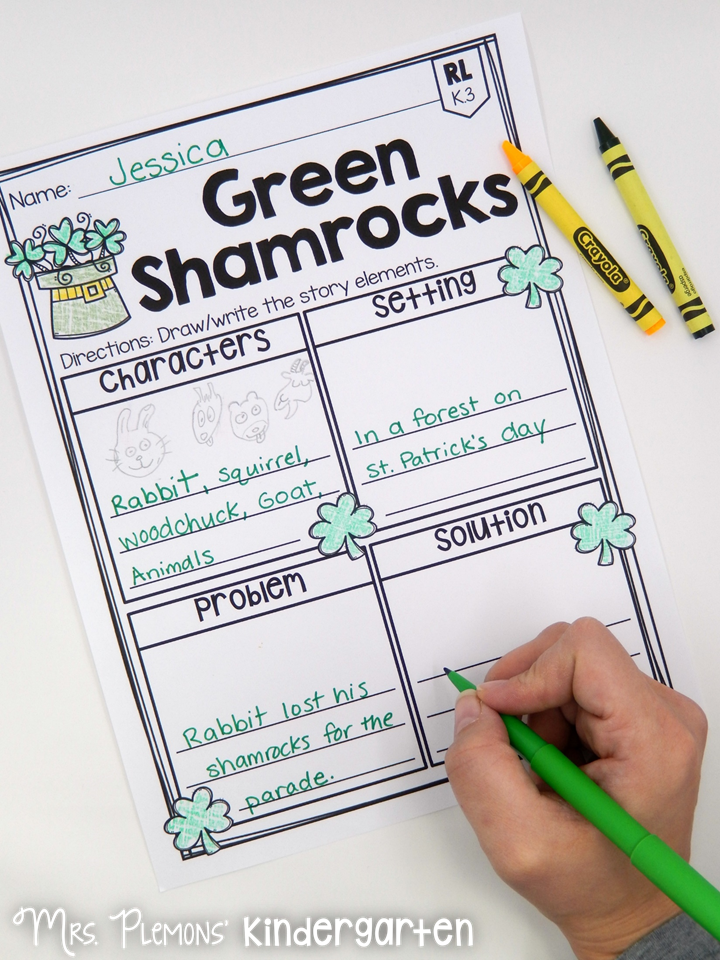 RL
K.3
Name: Jessica
Green
Shamrocks
Directions: Draw/write the story elements.
Characters
Rabbit, squirrel,
woodchuck, Goat,
Animals
Setting
In a forest on
St. Patrick's day
Problem
Rabbit lost his
shamrocks for the
parade.
Solution
Crayola
Crayola
Mrs. Plemons' Kindergarten